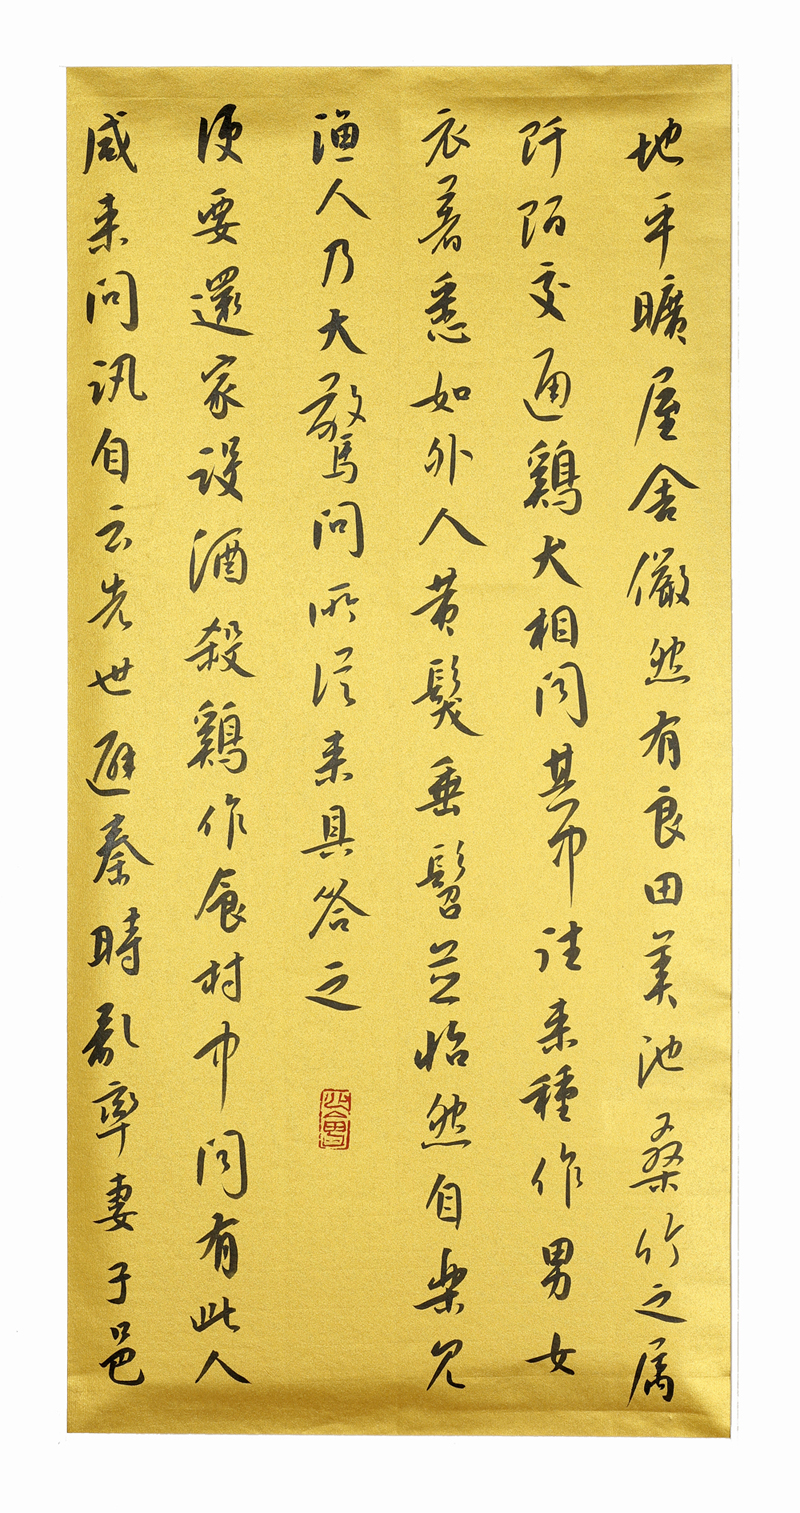 地平曠屋舍儼然有良田美池桑竹之属
阡陌交通鷄犬相聞其中往来種作男女
衣著悉如外人黄髮垂髫並怡然自樂見
漁人乃大驚問所從来具答之
便要還家設酒殺鷄作食村中聞有此人
咸来問訊自云先世避秦時亂率妻子邑